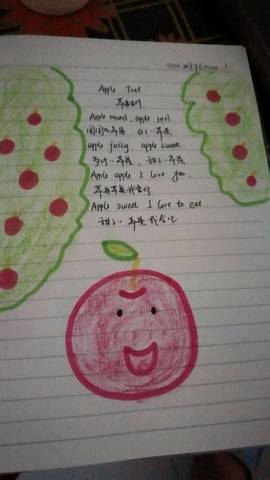 Date 2017.6 Page 1
Apple Tree
苹果树
Apple round, apple red
圆圆的苹果 红红苹果
apple juicy, apple sweet
多汁苹果, 甜甜苹果
Apple apple I love you,
苹果苹果我爱你
Apple sweet I love to eat
甜甜苹果我爱吃